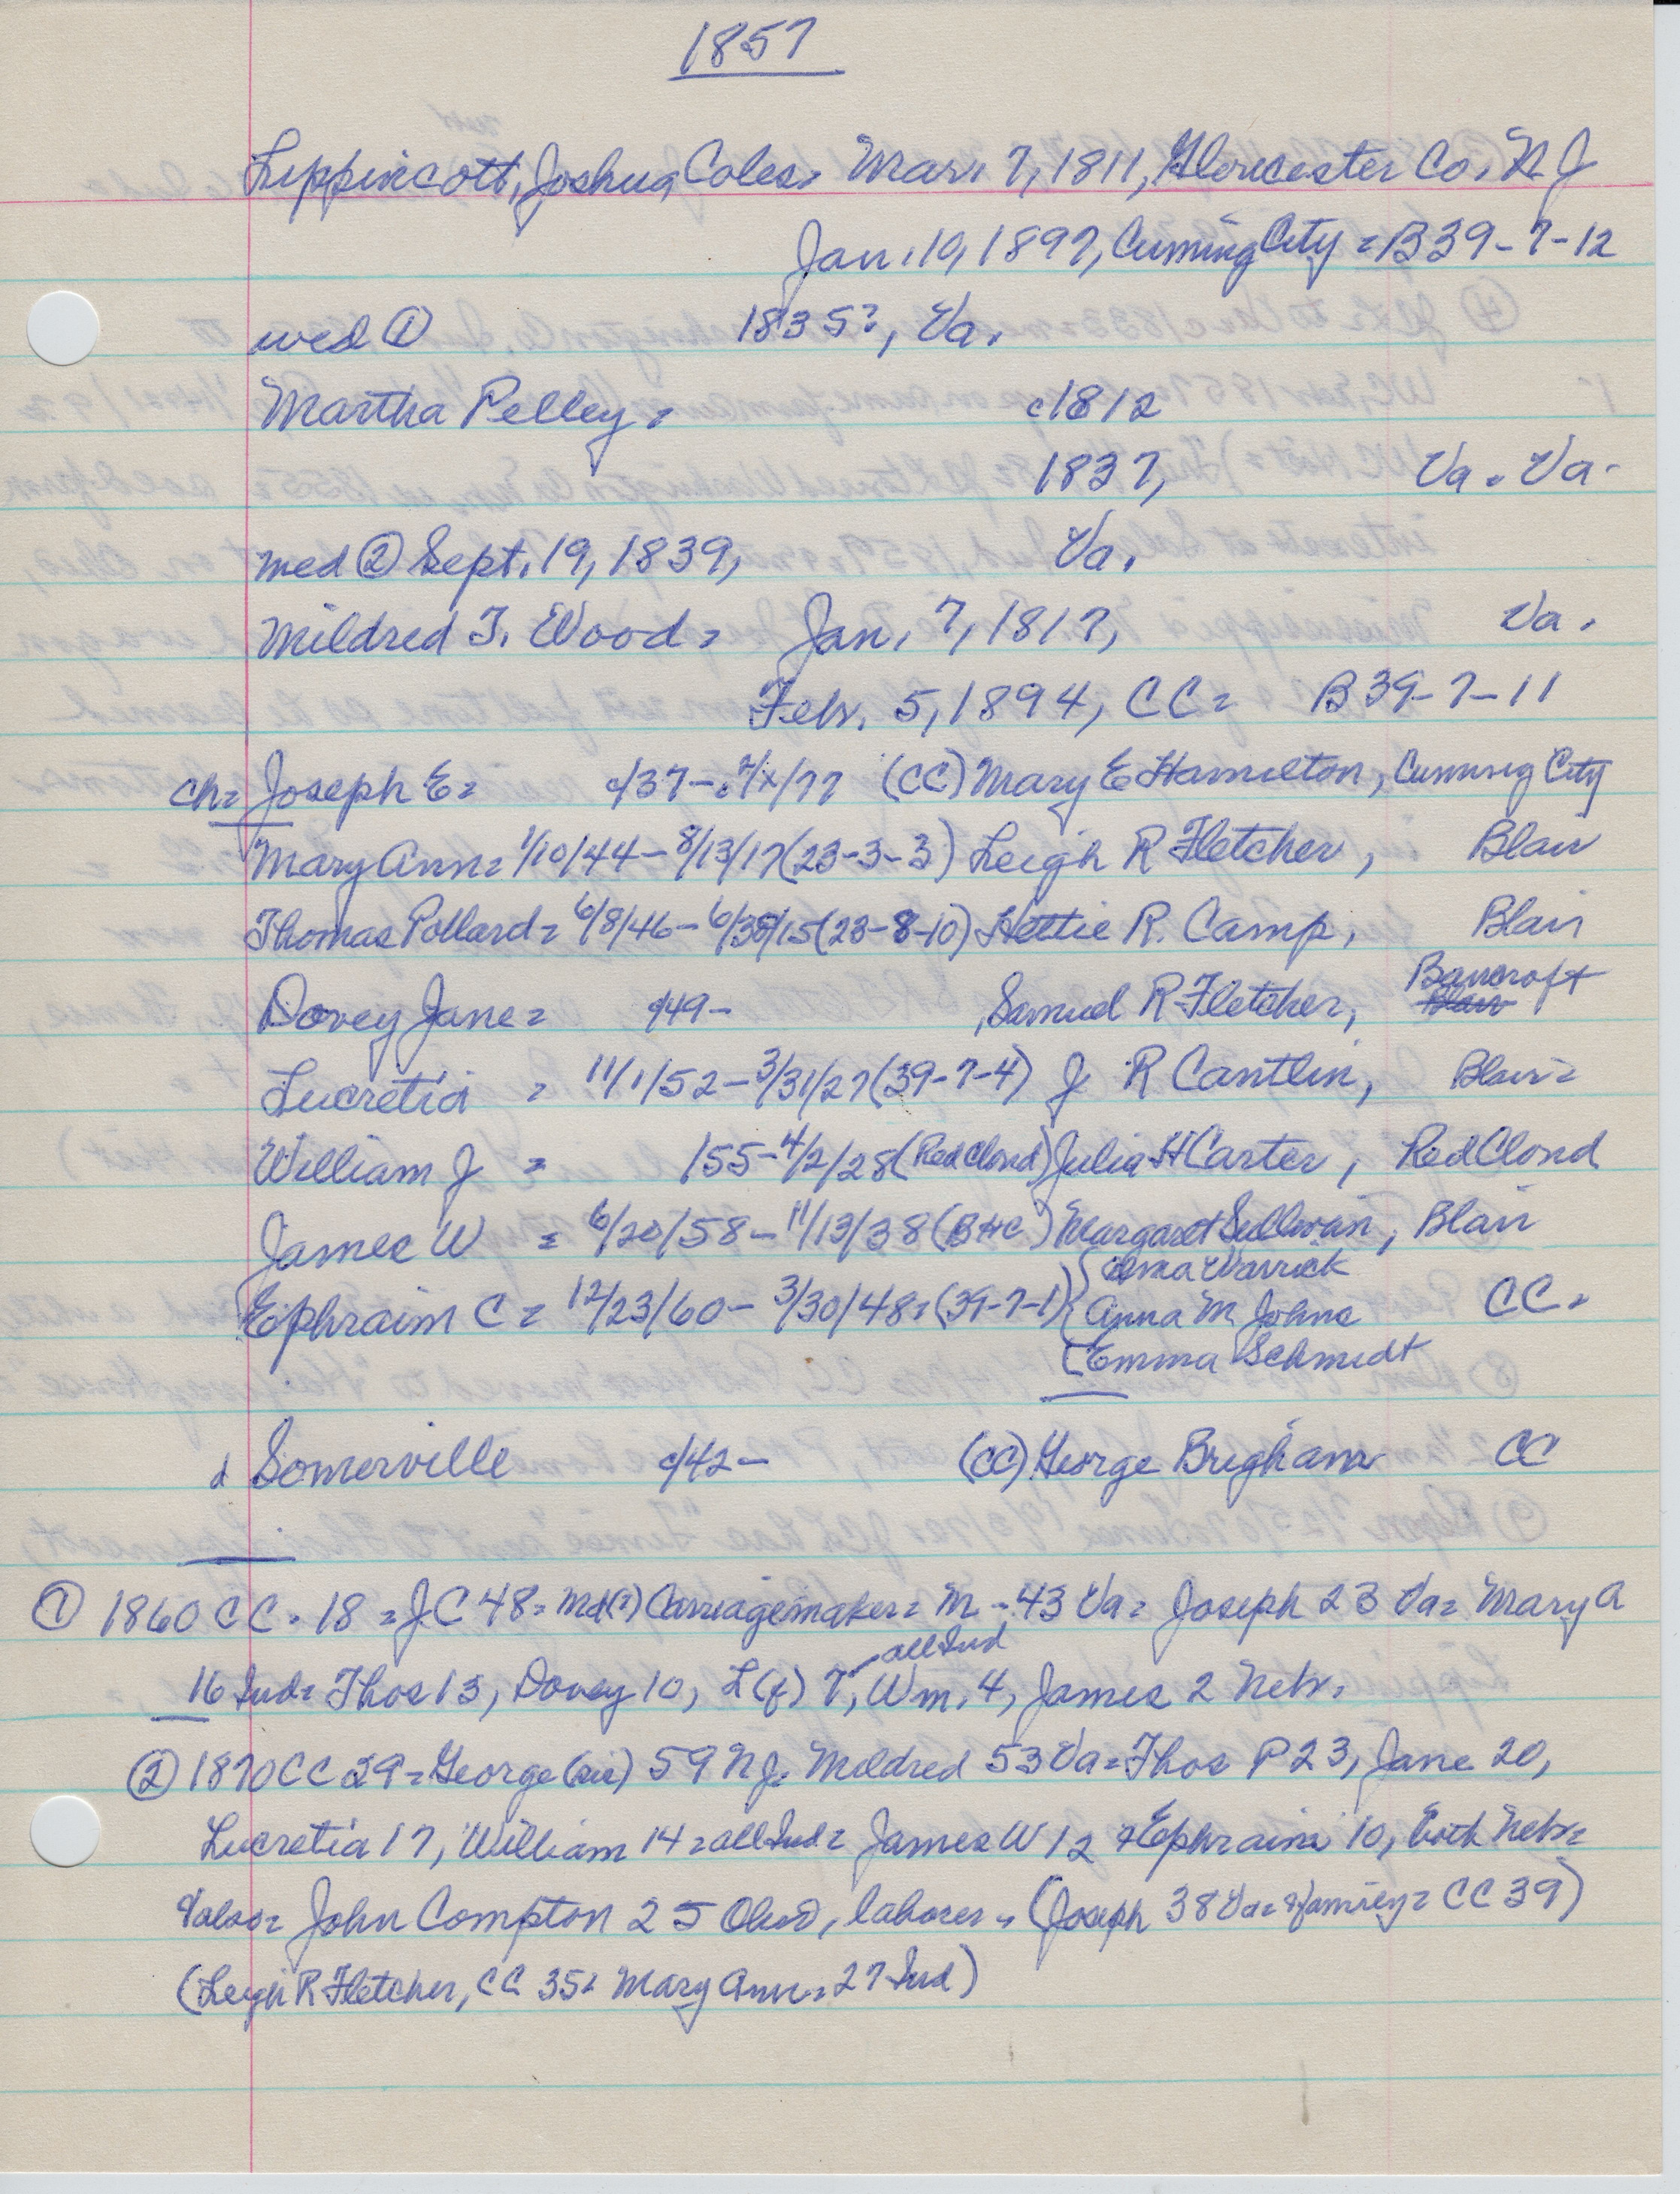 1857
Lippincott, Joshua Coles = Mar. 7, 1811, Gloucester Co. N J
Jan. 10, 1897, Cuming City = B39-7-12
wed ① 1835?, Va.
Martha Pelley = c1812
1837, Va. Va.
wed ② Sept. 19, 1839, Va.
Mildred T. Wood = Jan. 7, 1817, Va.
Feb. 5, 1894, CC = B 39-7-11
ch = Joseph E = c/37- (CC) Mary E Hamilton, Cuming City
Mary Ann = 1/10/44 - 8/13/17 (23-3-3) Leigh R Fletcher, Blair
Thomas Pollard = 6/8/46 - 6/30/15 (23-8-10) Hettie R. Camp, Blair
Dovey Jane = c/49 - Samuel R Fletcher, Bancroft
Lucretia = 11/1/52 - 3/31/27 (39-7-4) J R Cantlin, Blair =
William J = /55 - 4/2/28 (Red Cloud) Julia H Carter, Red Cloud
James W = 6/20/58 - 11/13/38 (BHC) Margaret Sullivan, Blair
Ephraim C = 12/23/60 - 3/30/48 = (39-7-1) { Warrick
Anna M Johns CC.
Emma Schmidt
d Somerville c/42 - (CC) George Brigham CC
① 1860 CC. 18 = J C 48 = Md(?) Carriagemaker = M - 43 Va = Joseph 23 Va = Mary A
all Ind
16 Ind = Thos 13, Dovey 10, L (f) 7, Wm. 4, James 2 Nebr.
② 1870 CC 29 = George (sic) 59 N J. Mildred 53 Va = Thos P 23, Jane 20,
Lucretia 17, William 14 = all Ind = James W 12 & Ephraim 10, both Nebr =
& also = John Compton 25 Ohio, laborer. (Joseph 38 Va = & family = CC 39)
(Leigh R Fletcher, CC 35 = Mary Ann = 27 Ind)